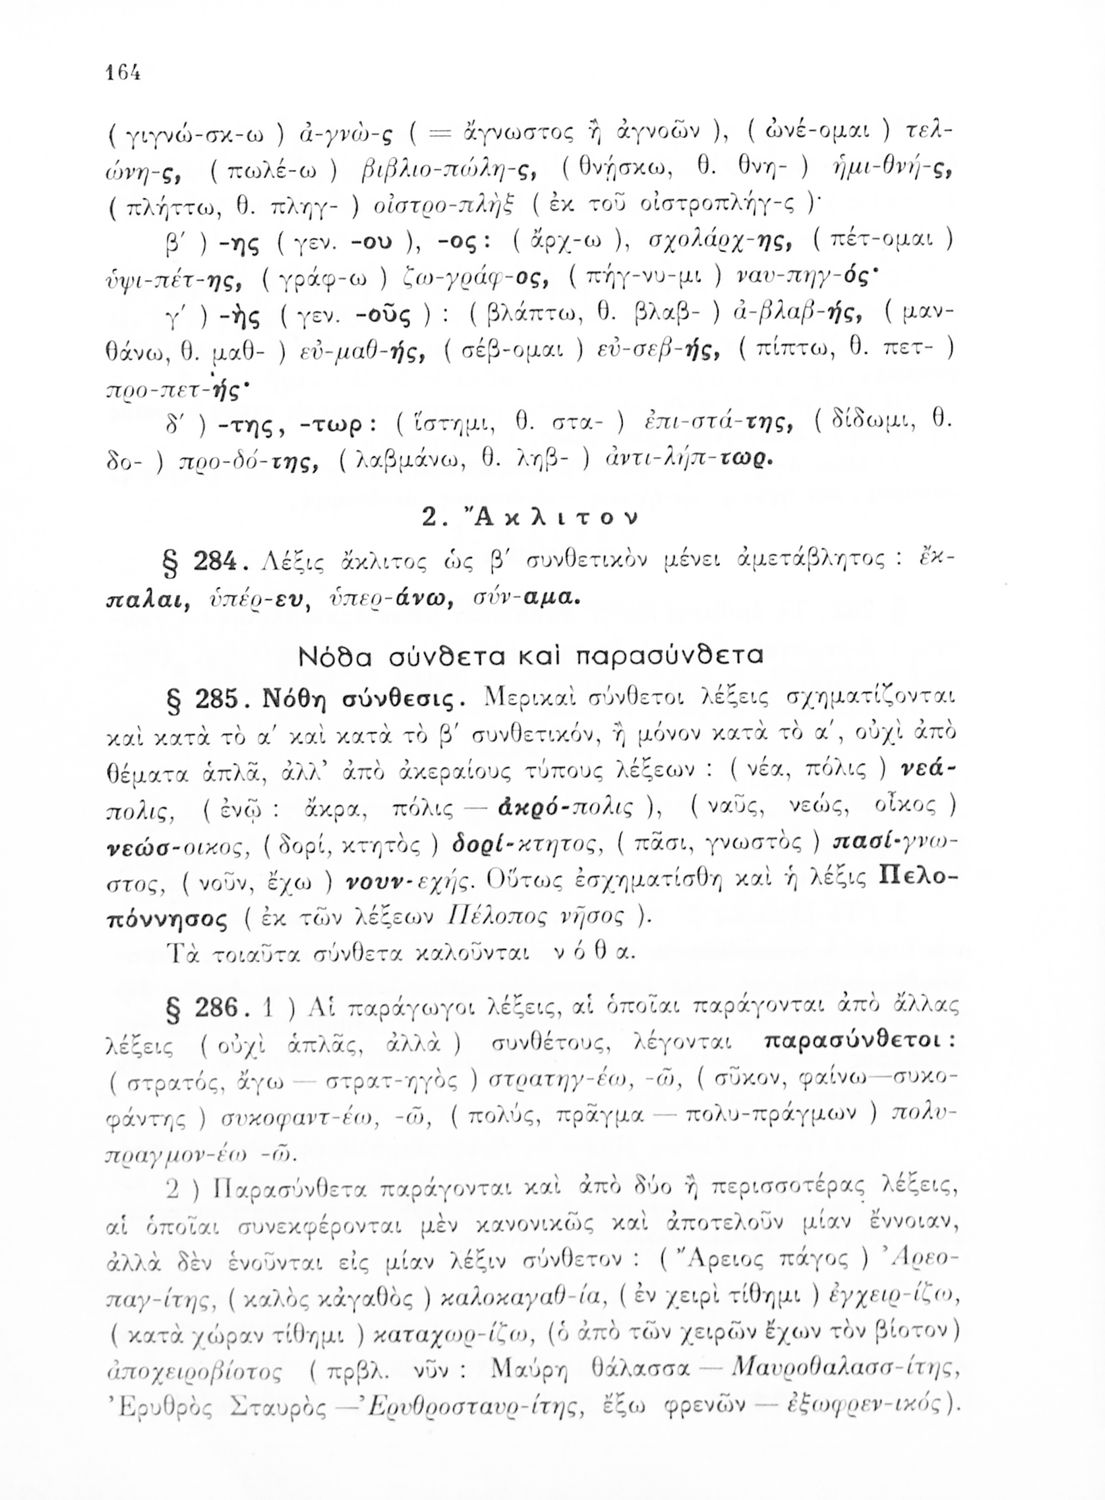 164
( γιγνώ-σκ-ω ) ἀ-γνὼ-ς ( = ἄγνωστος ἢ ἀγνοῶν ), ( ὠνέ-ομαι ) τελ-
ώνη-ς, ( πωλέ-ω ) βιβλιο-πώλη-ς, ( θνῄσκω, θ. θνη- ) ἡμι-θνή-ς,
( πλήττω, θ. πληγ- ) οἰστρο-πλὴξ ( ἐκ τοῦ οἰστροπλήγ-ς )·
β′ ) -ης ( γεν. -ου ), -ος : ( ἄρχ-ω ), σχολάρχ-ης, ( πέτ-ομαι )
ὑψι-πέτ-ης, ( γράφ-ω ) ζω-γράφ-ος, ( πήγ-νυ-μι ) ναυ-πηγ-ός·
γ′ ) -ὴς ( γεν. -οῦς ) : ( βλάπτω, θ. βλαβ- ) ἀ-βλαβ-ής, ( μαν-
θάνω, θ. μαθ- ) εὐ-μαθ-ής, ( σέβ-ομαι ) εὐ-σεβ-ής, ( πίπτω, θ. πετ- )
προ-πετ-ής·
δ′ ) -της, -τωρ : ( ἵστημι, θ. στα- ) ἐπι-στά-της, ( δίδωμι, θ.
δο- ) προ-δό-της, ( λαβμάνω, θ. ληβ- ) ἀντι-λήπ-τωρ.
2. Ἄκλιτον
§ 284. Λέξις ἄκλιτος ὡς β′ συνθετικὸν μένει ἀμετάβλητος : ἔκ-
παλαι, ὑπέρ-ευ, ὑπερ-άνω, σύν-αμα.
Νόθα σύνθετα καὶ παρασύνθετα
§ 285. Νόθη σύνθεσις. Μερικαὶ σύνθετοι λέξεις σχηματίζονται
καὶ κατὰ τὸ α′ καὶ κατὰ τὸ β′ συνθετικόν, ἢ μόνον κατὰ τὸ α′, οὐχὶ ἀπὸ
θέματα ἁπλᾶ, ἀλλ’ ἀπὸ ἀκεραίους τύπους λέξεων : ( νέα, πόλις ) νεά-
πολις, ( ἐνῷ : ἄκρα, πόλις — ἀκρό-πολις ), ( ναῦς, νεώς, οἶκος )
νεώσ-οικος, ( δορί, κτητὸς ) δορί-κτητος, ( πᾶσι, γνωστὸς ) πασί-γνω-
στος, ( νοῦν, ἔχω ) νουν-εχής. Οὕτως ἐσχηματίσθη καὶ ἡ λέξις Πελο-
πόννησος ( ἐκ τῶν λέξεων Πέλοπος νῆσος ).
Τὰ τοιαῦτα σύνθετα καλοῦνται νόθα.
§ 286. 1 ) Αἱ παράγωγοι λέξεις, αἱ ὁποῖαι παράγονται ἀπὸ ἄλλας
λέξεις ( οὐχὶ ἁπλᾶς, ἀλλὰ ) συνθέτους, λέγονται παρασύνθετοι :
( στρατός, ἄγω — στρατ-ηγὸς ) στρατηγ-έω, -ῶ, ( σῦκον, φαίνω—συκο-
φάντης ) συκοφαντ-έω, -ῶ, ( πολύς, πρᾶγμα — πολυ-πράγμων ) πολυ-
πραγμον-έω -ῶ.
2 ) Παρασύνθετα παράγονται καὶ ἀπὸ δύο ἢ περισσοτέρας λέξεις,
αἱ ὁποῖαι συνεκφέρονται μὲν κανονικῶς καὶ ἀποτελοῦν μίαν ἔννοιαν,
ἀλλὰ δὲν ἑνοῦνται εἰς μίαν λέξιν σύνθετον : ( Ἄρειος πάγος ) Ἀρεο-
παγ-ίτης, ( καλὸς κἀγαθὸς ) καλοκαγαθ-ία, ( ἐν χειρὶ τίθημι ) ἐγχειρ-ίζω,
( κατὰ χώραν τίθημι ) καταχωρ-ίζω, (ὁ ἀπὸ τῶν χειρῶν ἔχων τὸν βίοτον)
ἀποχειροβίοτος ( πρβλ. νῦν : Μαύρη θάλασσα — Μαυροθαλασσ-ίτης,
Ἐρυθρὸς Σταυρὸς — Ἐρυθροσταυρ-ίτης, ἔξω φρενῶν — ἐξωφρεν-ικός).